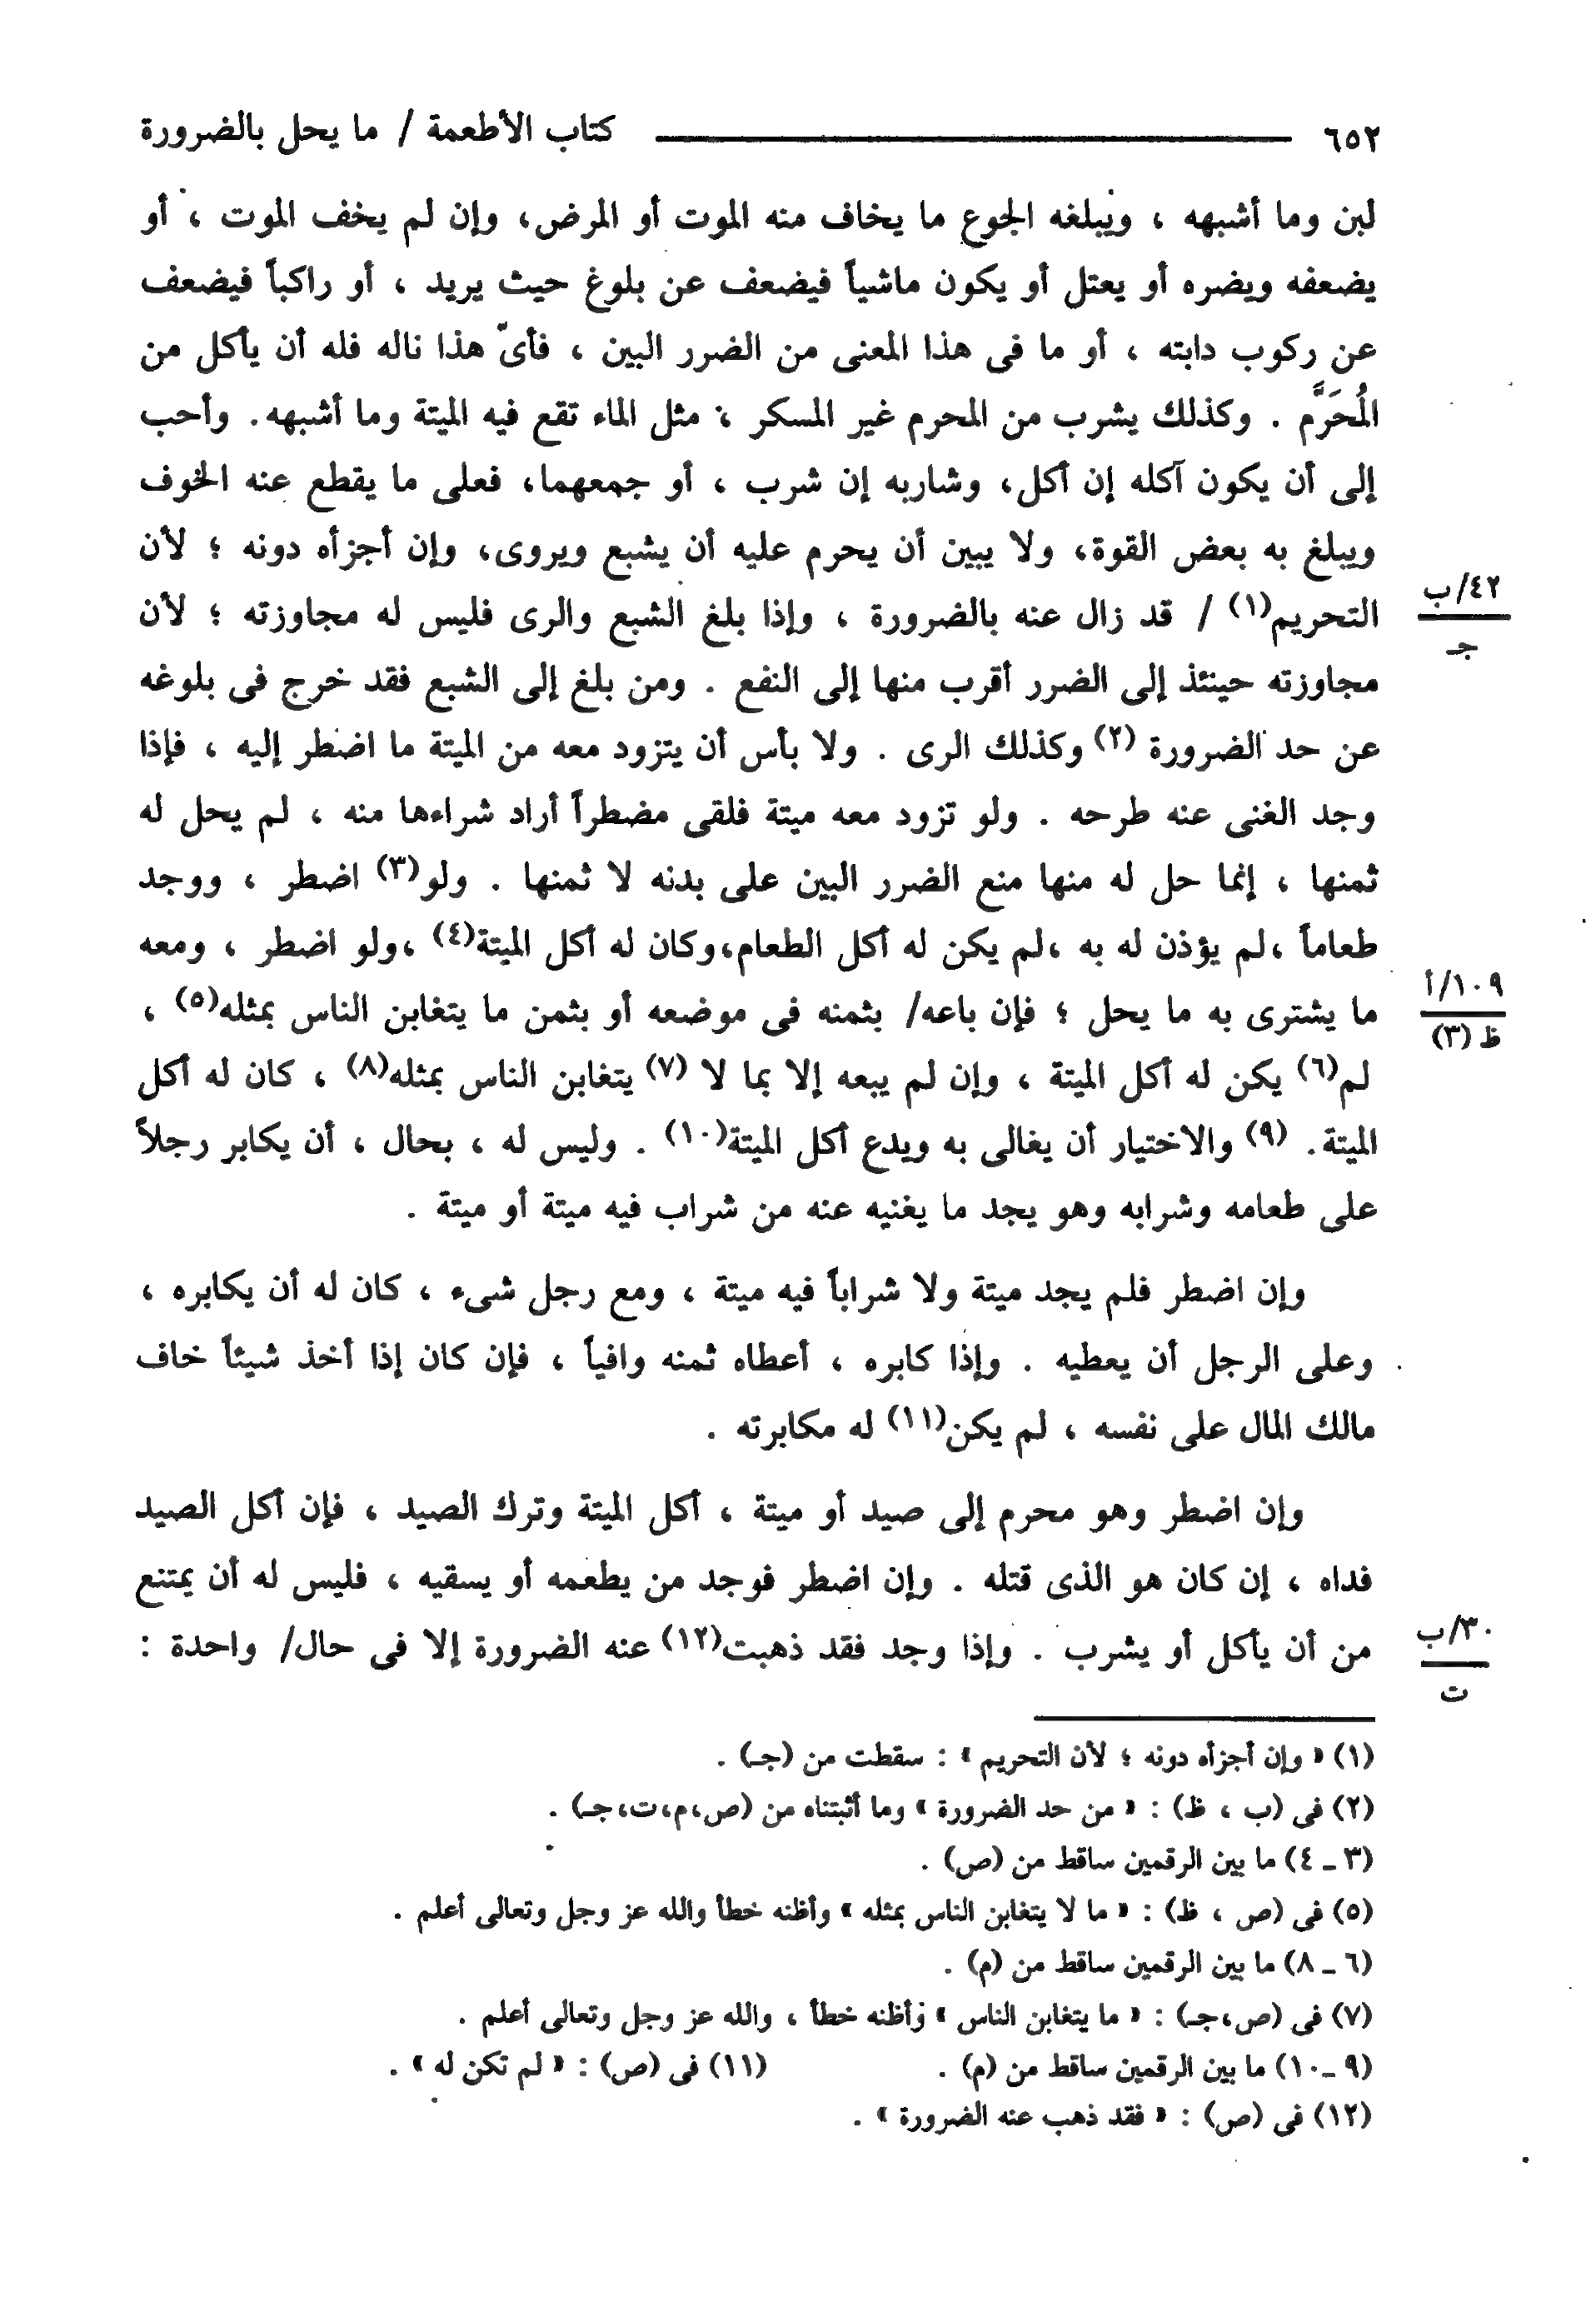 ٦٥٢ كتاب الأطعمة / ما يحل بالضرورة
لبن وما أشبهه ، ويبلغه الجوع ما يخاف منه الموت أو المرض، وإن لم يخف الموت ، أو
يضعفه ويضره أو يعتل أو يكون ماشياً فيضعف عن بلوغ حيث يريد ، أو راكباً فيضعف
عن ركوب دابته ، أو ما فى هذا المعنى من الضرر البين ، فأىّ هذا ناله فله أن يأكل من
المُحَرَّم . وكذلك يشرب من المحرم غير المسكر ، مثل الماء تقع فيه الميتة وما أشبهه. وأحب
إلى أن يكون آكله إن أكل، وشاربه إن شرب ، أو جمعهما، فعلى ما يقطع عنه الخوف
ويبلغ به بعض القوة، ولا يبين أن يحرم عليه أن يشبع ويروى، وإن أجزأه دونه ؛ لأن
التحريم(١) / قد زال عنه بالضرورة ، وإذا بلغ الشبع والرى فليس له مجاوزته ؛ لأن
٤٢/ب
جـ
مجاوزته حينئذ إلى الضرر أقرب منها إلى النفع . ومن بلغ إلى الشبع فقد خرج فى بلوغه
عن حد الضرورة (٢) وكذلك الرى . ولا بأس أن يتزود معه من الميتة ما اضطر إليه ، فإذا
وجد الغنى عنه طرحه . ولو تزود معه ميتة فلقى مضطراً أراد شراءها منه ، لم يحل له
ثمنها ، إنما حل له منها منع الضرر البين على بدنه لا ثمنها . ولو(٣) اضطر ، ووجد
طعاماً ،لم يؤذن له به ،لم يكن له أكل الطعام،وكان له أكل الميتة(٤) ،ولو اضطر ، ومعه
ما يشترى به ما يحل ؛ فإن باعه/ بثمنه فى موضعه أو بثمن ما يتغابن الناس بمثله(٥) ،
١٠٩/أ
ظ (٣)
لم(٦) يكن له أكل الميتة ، وإن لم يبعه إلا بما لا (٧) يتغابن الناس بمثله(٨) ، كان له أكل
الميتة. (٩) والاختيار أن يغالى به ويدع أكل الميتة(١٠) . وليس له ، بحال ، أن يكابر رجلاً
على طعامه وشرابه وهو يجد ما يغنيه عنه من شراب فيه ميتة أو ميتة .
وإن اضطر فلم يجد ميتة ولا شراباً فيه ميتة ، ومع رجل شىء ، كان له أن يكابره ،
وعلى الرجل أن يعطيه . وإذا كابره ، أعطاه ثمنه وافياً ، فإن كان إذا أخذ شيئاً خاف
مالك المال على نفسه ، لم يكن(١١) له مكابرته .
وإن اضطر وهو محرم إلى صيد أو ميتة ، أكل الميتة وترك الصيد ، فإن أكل الصيد
فداه ، إن كان هو الذى قتله . وإن اضطر فوجد من يطعمه أو يسقيه ، فليس له أن يمتنع
من أن يأكل أو يشرب . وإذا وجد فقد ذهبت(١٢) عنه الضرورة إلا فى حال/ واحدة :
٣٠/ب
ت
(١) « وإن أجزأه دونه ؛ لأن التحريم » : سقطت من (جـ) .
(٢) فى (ب ، ظ) : « من حد الضرورة » وما أثبتناه من (ص،م،ت،جـ) .
(٣ ـ ٤) ما بين الرقمين ساقط من (ص) .
(٥) فى (ص ، ظ) : « ما لا يتغابن الناس بمثله » وأظنه خطأ والله عز وجل وتعالى أعلم .
(٦ ـ ٨) ما بين الرقمين ساقط من (م) .
(٧) فى (ص،جـ) : « ما يتغابن الناس » وأظنه خطأ ، والله عز وجل وتعالى أعلم .
(٩ ـ١٠) ما بين الرقمين ساقط من (م) . (١١) فى (ص) : « لم تكن له » .
(١٢) فى (ص) : « فقد ذهب عنه الضرورة » .